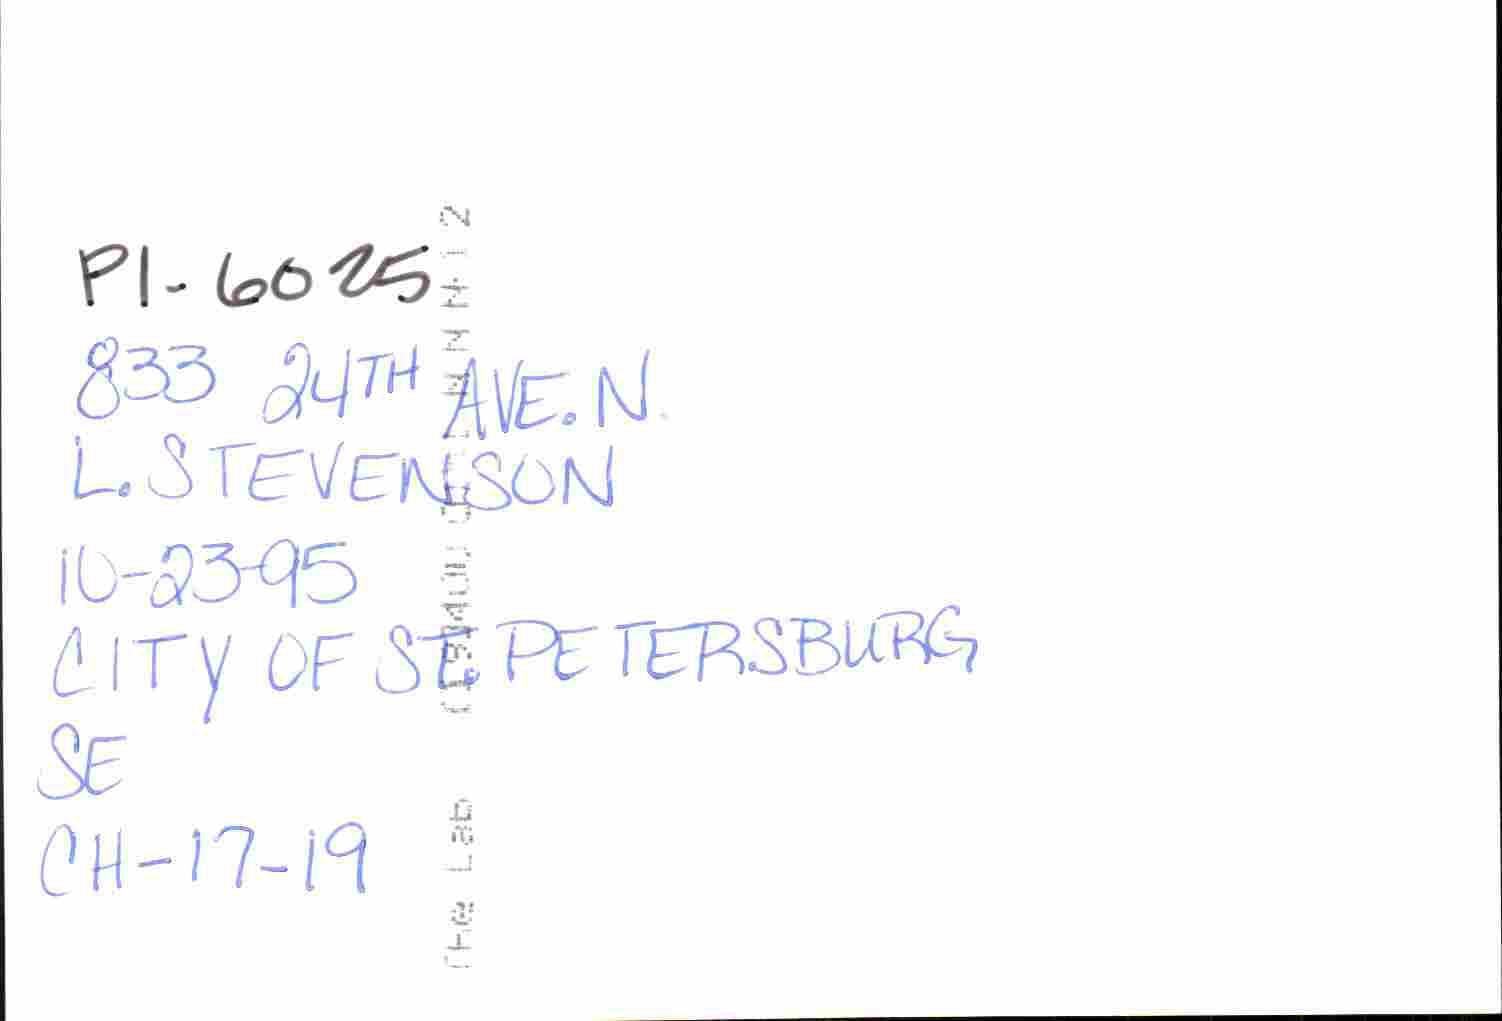 PI-6025
833 24TH AVE. N.
L. STEVENSON
10-23-95
CITY OF ST. PETERSBURG
SE
CH-17-19
Lab